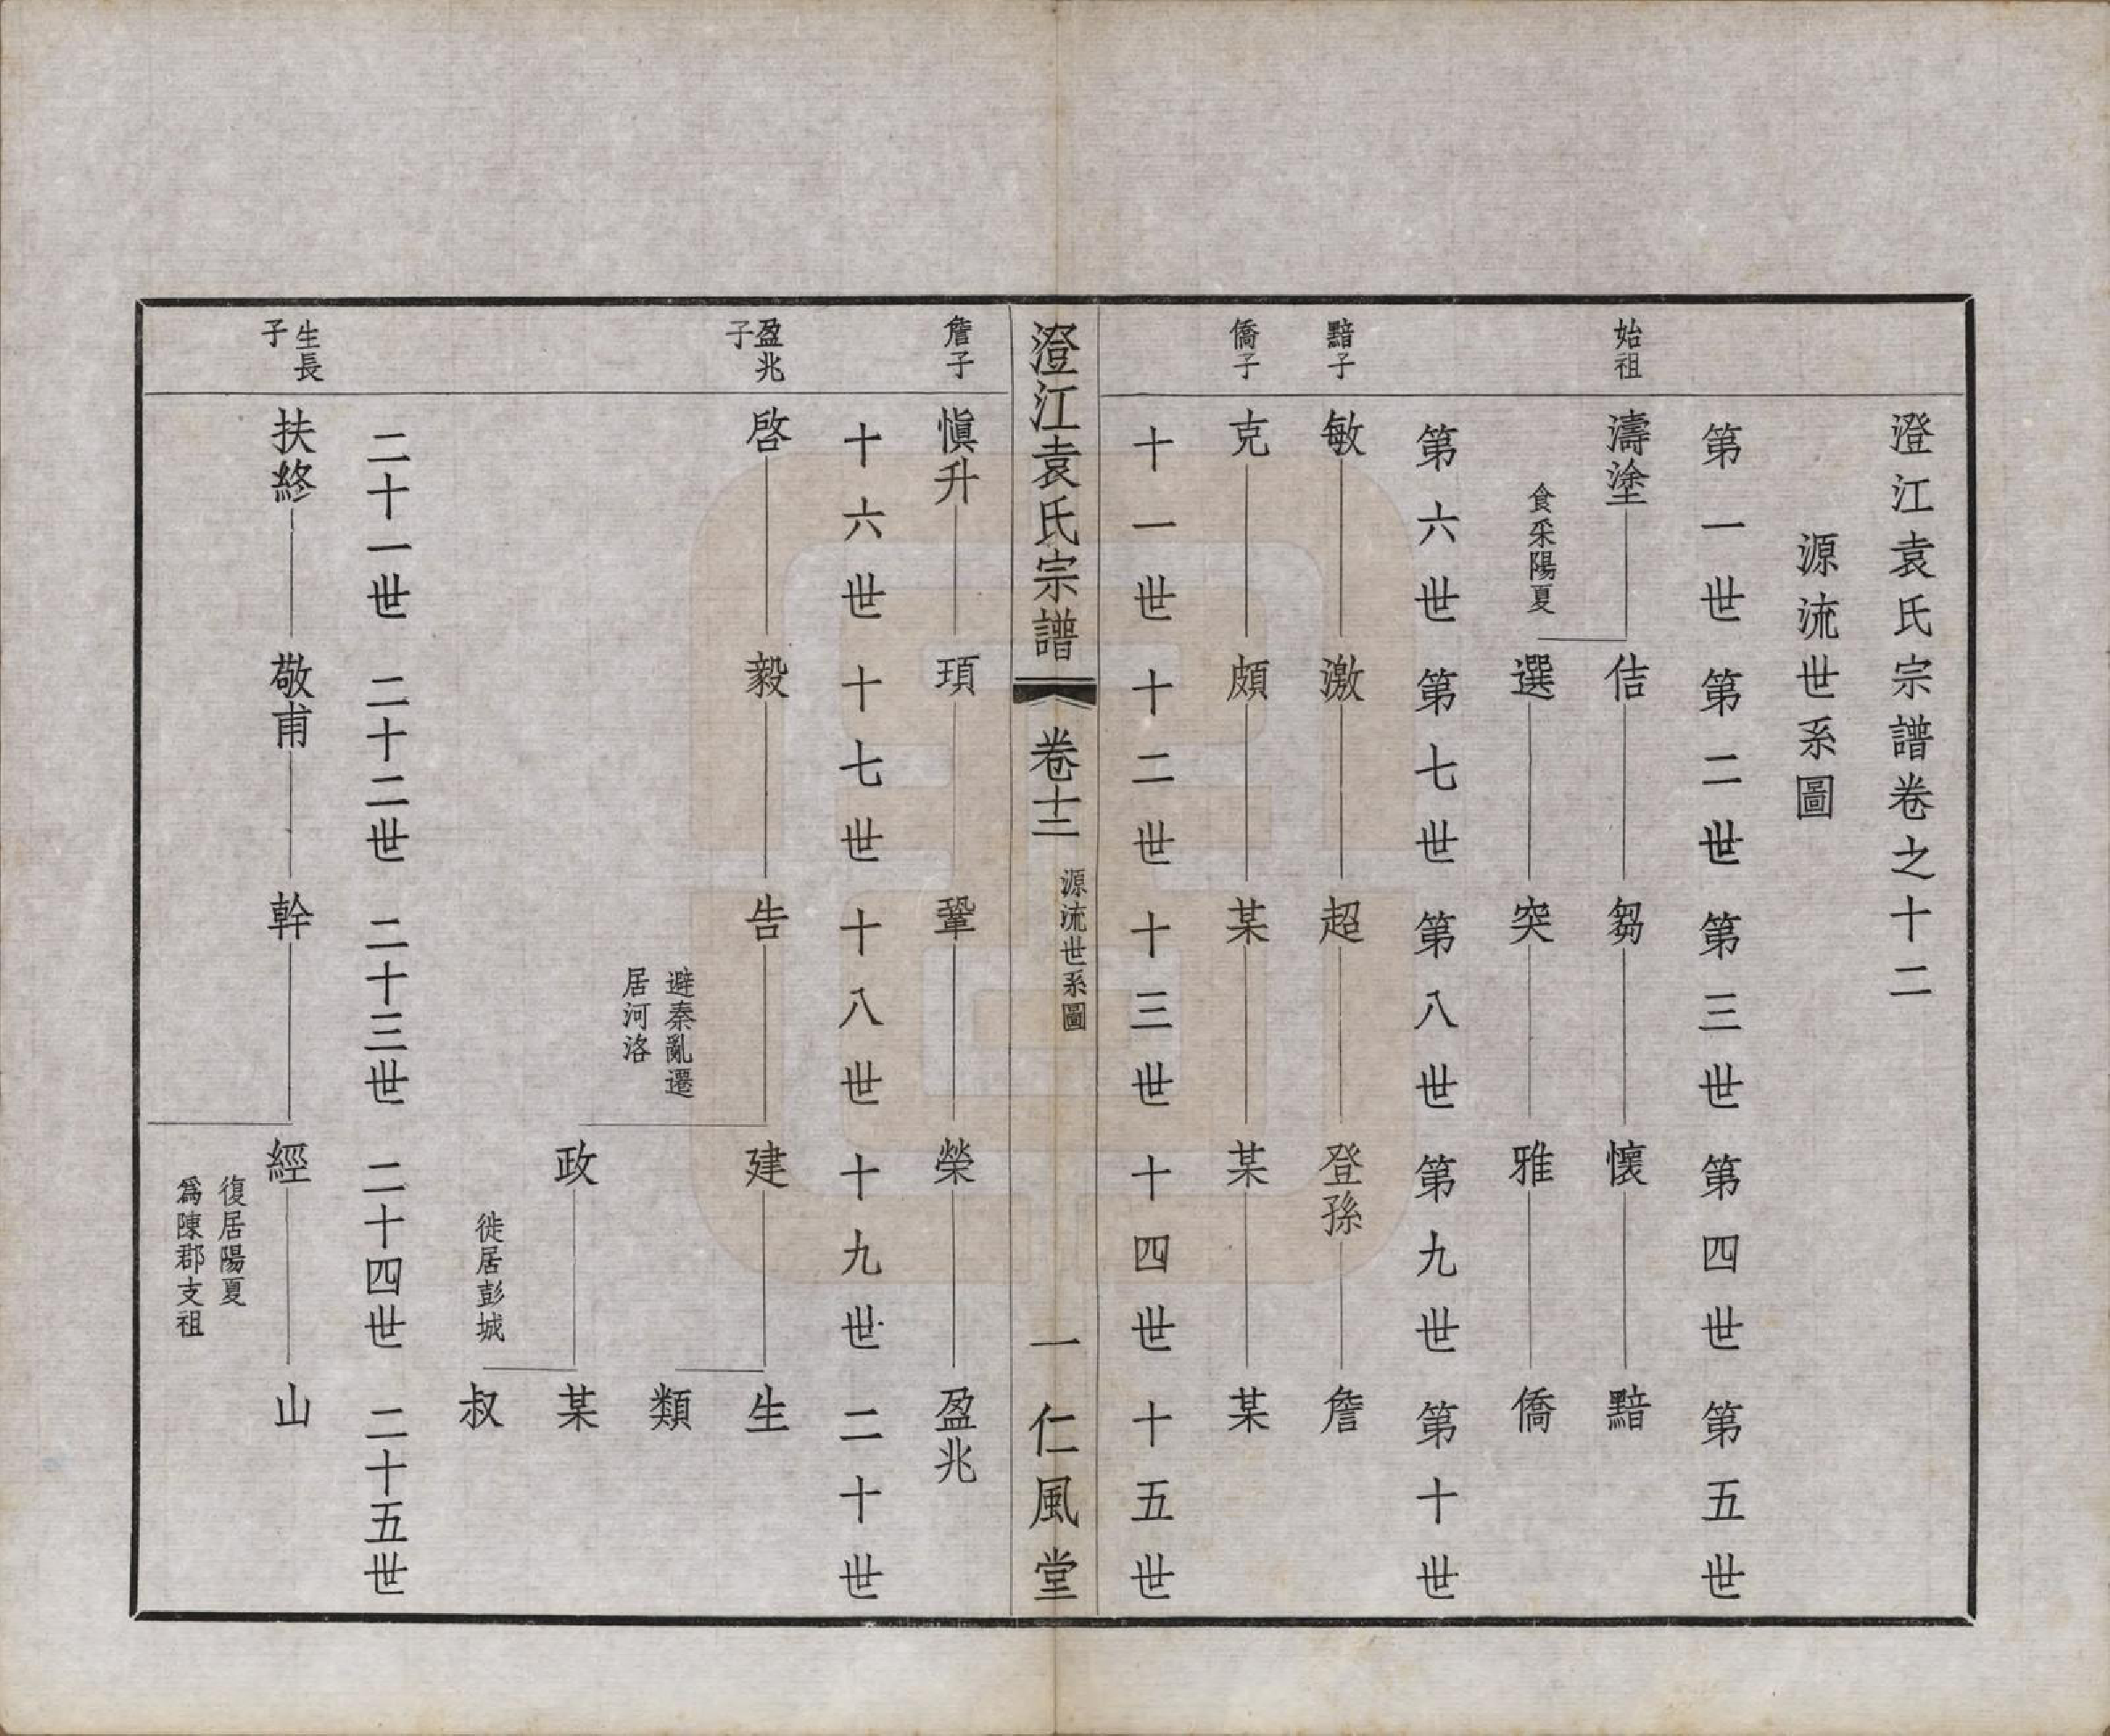 澄江袁氏宗譜卷之十二
源流世系圖
第一世 第二世 第三世 第四世 第五世
始祖 濤塗 佶 芻 懷 黯
食采陽夏
選 突 雅 僑
第六世 第七世 第八世 第九世 第十世
黯子 敏 激 超 登孫 詹
僑子 克 頗 某 某 某
十一世 十二世 十三世 十四世 十五世
澄江袁氏宗譜 卷十二 源流世系圖 一 仁風堂
詹子 愼升 頊 鞏 榮 盈兆
十六世 十七世 十八世 十九世 二十世
盈兆子 啓 毅 告 建 生
避秦亂遷
居河洛
類
政 某
徙居彭城
叔
二十一世 二十二世 二十三世 二十四世 二十五世
生長子 扶終 敬甫 幹 經 山
復居陽夏
爲陳郡支祖